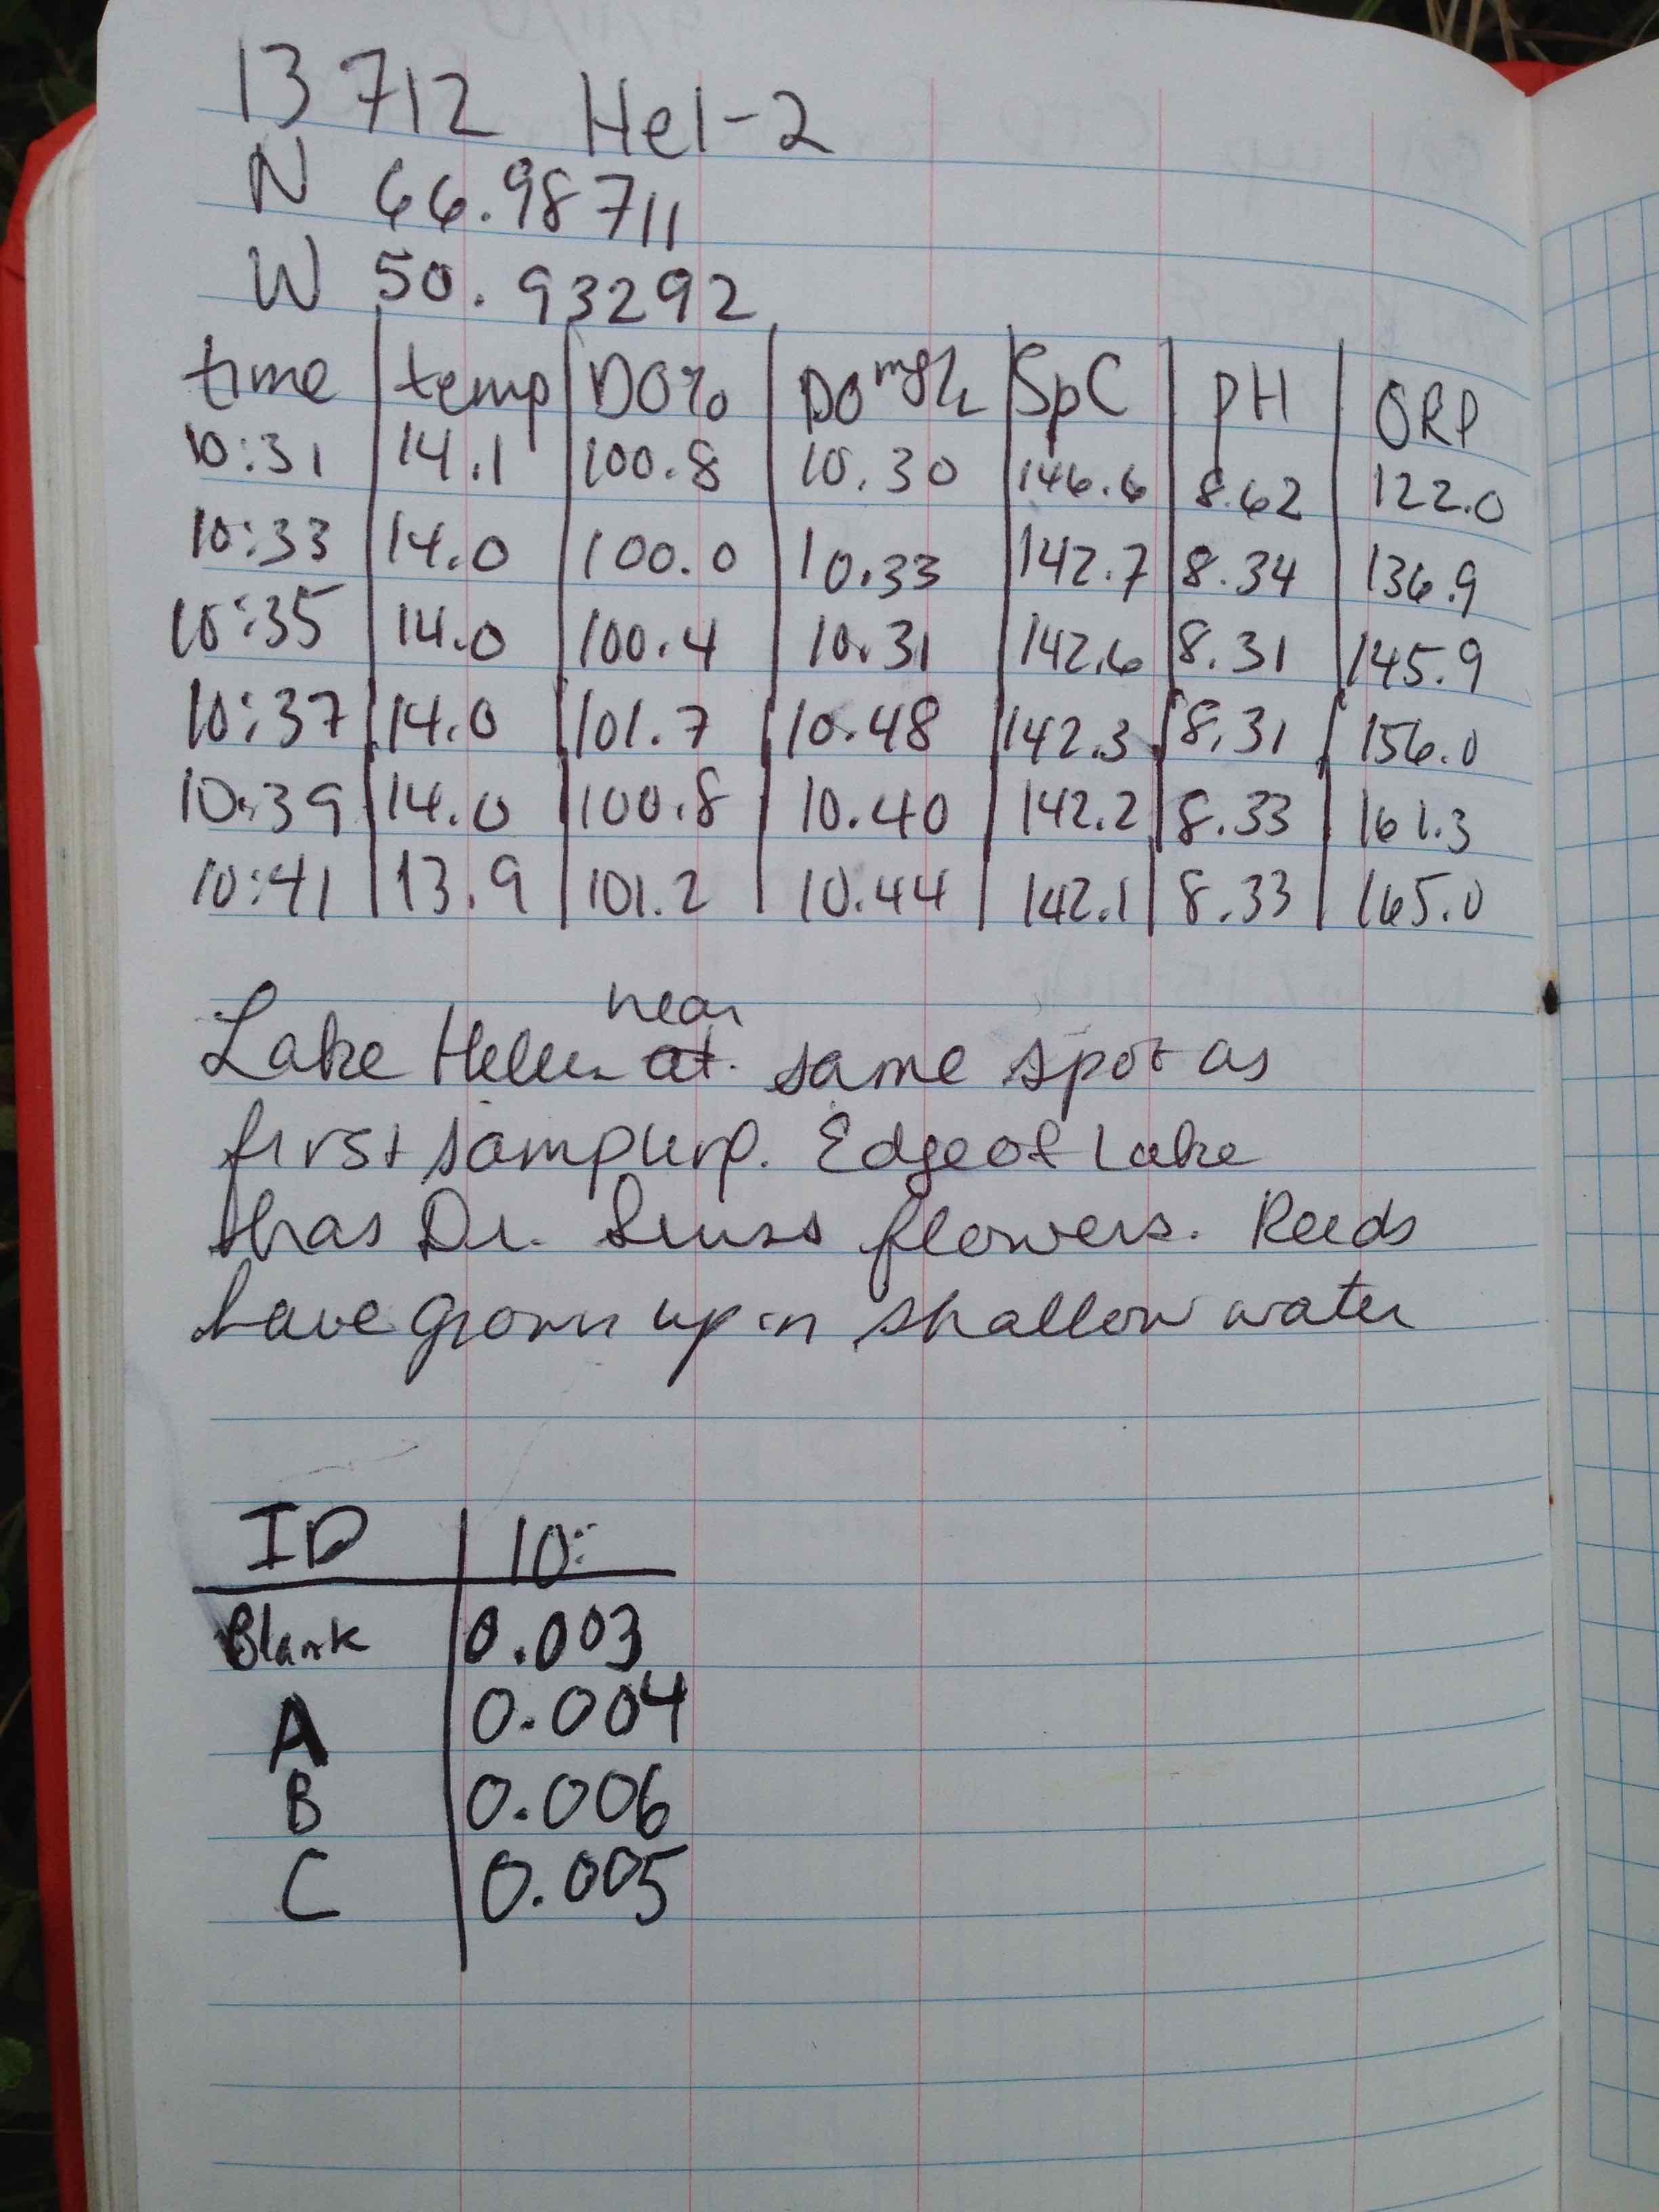 13 712 Hel-2
N 66.98711
W 50.93292
time temp DO% DO mg/L SpC pH ORP
10:31 14.1 100.8 10.30 146.6 8.62 122.0
10:33 14.0 100.0 10.33 142.7 8.34 136.9
10:35 14.0 100.4 10.31 142.6 8.31 145.9
10:37 14.0 101.7 10.48 142.3 8.31 156.0
10:39 14.0 100.8 10.40 142.2 8.33 161.3
10:41 13.9 101.2 10.44 142.1 8.33 165.0
near
Lake Helen at same spot as
first . Edge of Lake
has Dr. Seuss flowers. Reeds
have grown up in shallow water
ID 10:
Blank 0.003
A 0.004
B 0.006
C 0.005